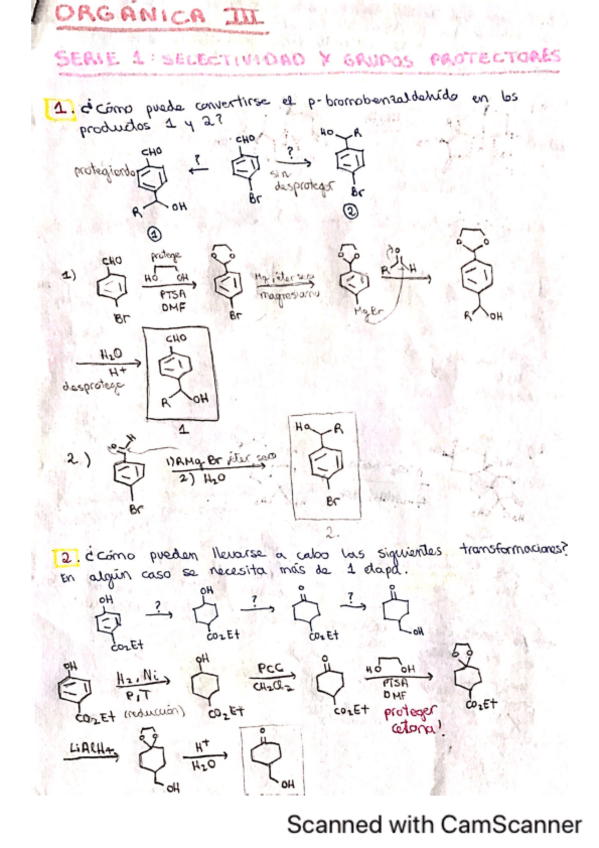 ORGÁNICA III
SERIE 1: SELECTIVIDAD Y GRUPOS PROTECTORES
1. ¿Cómo puede convertirse el p-bromobenzaldehído en los
productos 1 y 2?
CHO
CHO
HO R
protegiendo
?
?
sin
desproteger
R OH
Br
Br
1
2
1)
CHO
protege
HO OH
PTSA
DMF
Br
O O
Br
Mg, éter seco
magnesiano
O O
MgBr
O
R H
O O
R OH
H2O
H+
desprotege
CHO
R OH
1
2)
O H
Br
1) RMgBr, éter seco
2) H2O
HO R
Br
2.
2. ¿Cómo pueden llevarse a cabo las siguientes transformaciones?
En algún caso se necesita más de 1 etapa.
OH
?
OH
?
O
?
O
CO2Et
CO2Et
CO2Et
OH
OH
H2, Ni
P, T
(reducción)
CO2Et
OH
CO2Et
PCC
CH2Cl2
O
CO2Et
HO OH
PTSA
DMF
proteger
cetona!
O O
CO2Et
LiAlH4
O O
OH
H+
H2O
O
OH
Scanned with CamScanner